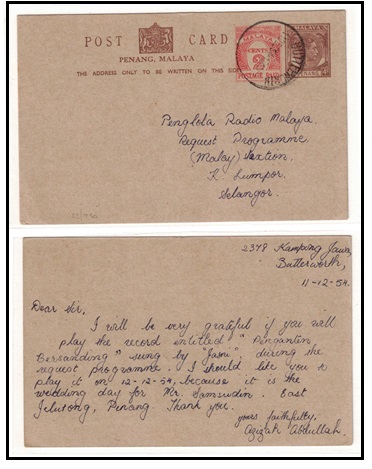 POST CARD
PENANG, MALAYA
THE ADDRESS ONLY TO BE WRITTEN ON THIS SIDE
MALAYA
2
CENTS
POSTAGE DUE
Penglola Radio Malaya
Request Programme
(Malay) Sextion.
K. Lumpor.
Selangor.
2378 Kampong Jawa,
Butterworth,
11-12-54.
Dear Sir,
I will be very grateful if you will
play the record entitled " Penganten
Bersanding " sung by "Jasni", during the
request programme. I should like you to
play it on 12-12-54, because it is the
wedding day for Mr. Samsudin. East
Jelutong, Penang. Thank you.
yours faithfully,
Azizah Abdullah.